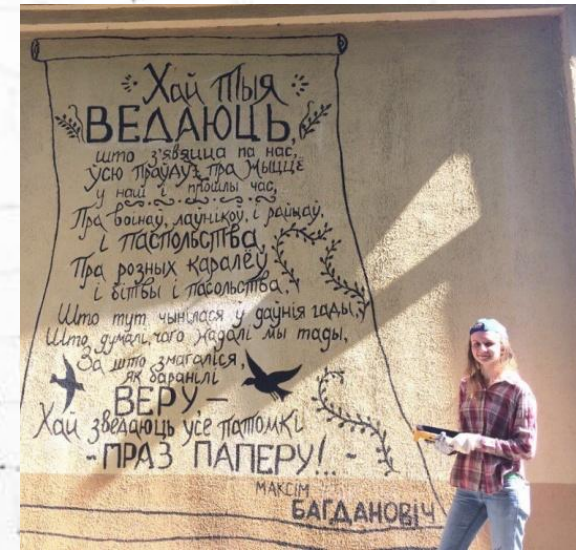 Хай тыя
ВЕДАЮЦЬ,
што з'явяцца па нас,
Усю праўду, пра жыццё
у наш і прошлы час,
Пра воінаў, лаўнікоў, і райцаў,
і паспольства,
Пра розных каралёў
і бітвы і пасольства,
Што тут чынілася ў даўнія гады,
Што думалі, чаго жадалі мы тады,
За што змагаліся,
як баранілі
ВЕРУ –
Хай зведаюць усе патомкі
- ПРАЗ ПАПЕРУ!.. -
МАКСІМ
БАГДАНОВІЧ